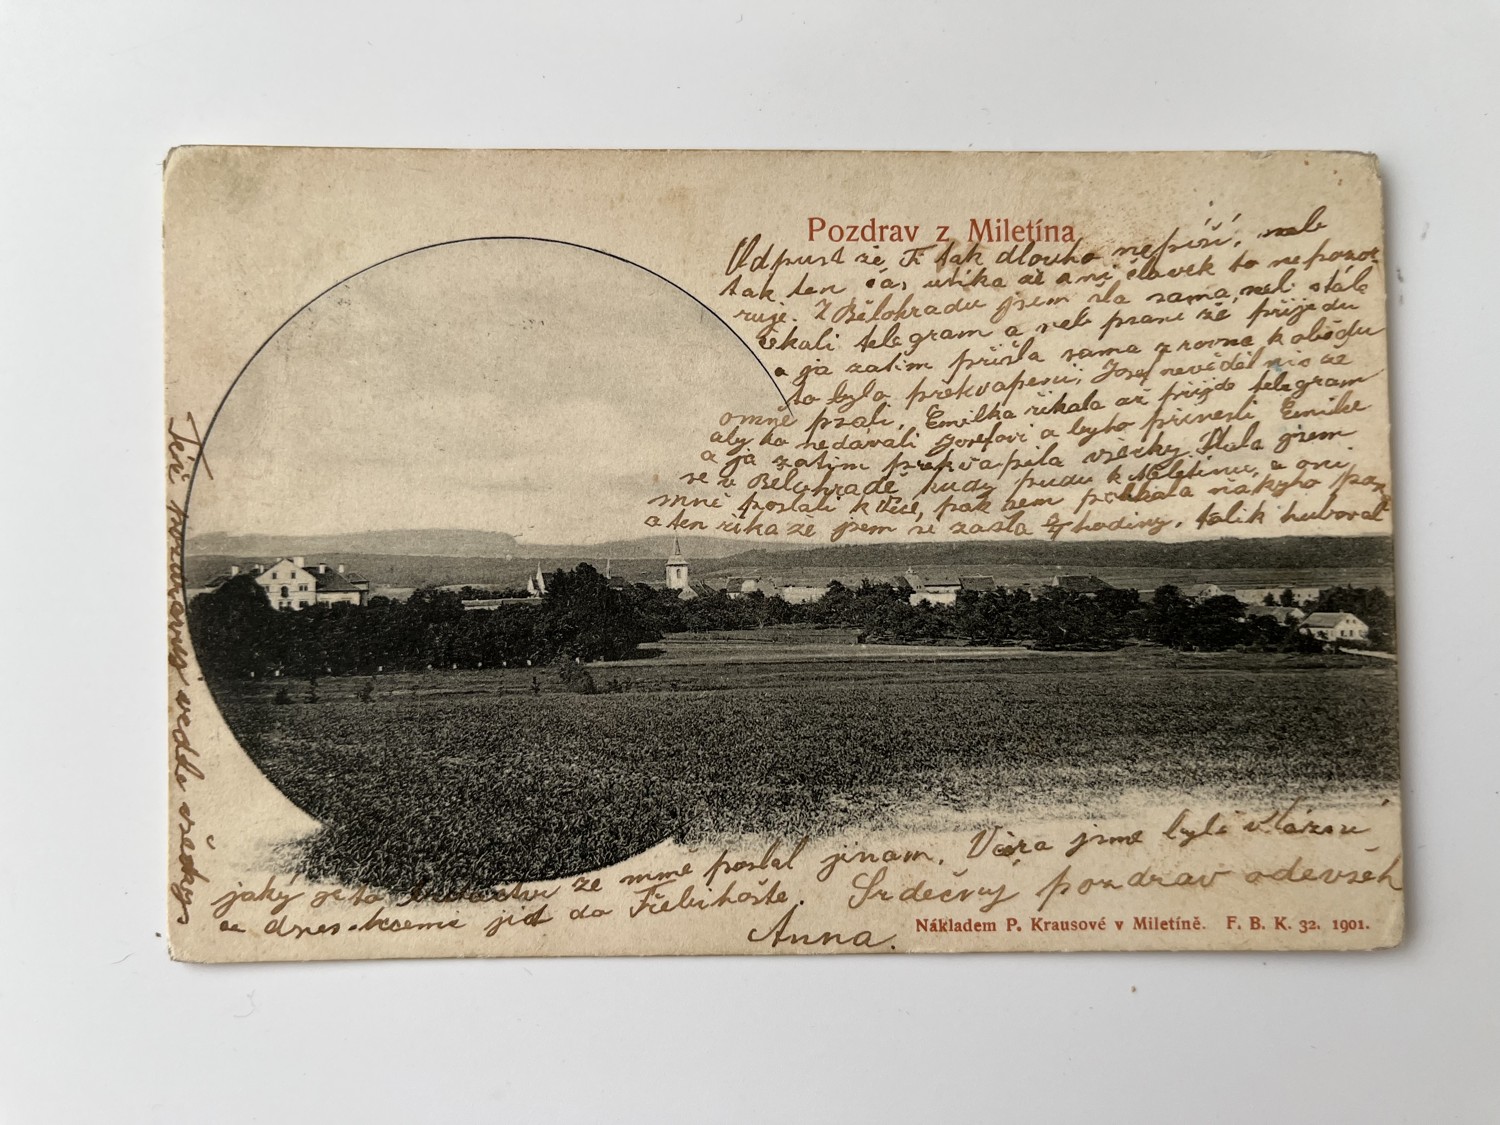 Pozdrav z Miletína
Odpust že Ti tak dlouho nepíší, neb
tak ten čas utíka až ani človek to nepozo-
ruje. Z Bělohradu jsem šla sama, neb stále
čkali telegram a neb psani že přijedu
a ja zatim přišla sama zrovna k obědu
to bylo překvapeni, Josef nevěděl nic že
omně psali, Emilka řikala až přijde telegram
aby ho nedavali Josefovi a byho přinesli Emilce
a ja zatim překvapila všecky. Ptala jsem
se v Bělohradě kudy pudu k Miletinu, a oni
mně poslali k pak sem potkala nákyho
a ten řika že jsem si zašla hodiny. tolik huboval
jaký je to že mně poslal jinam. Včera jsme byli v Lázni
a dnes hceme jid do Třebihoště. Srdečný pozdrav odevšéh
Anna.
Nákladem P. Krausové v Miletíně. F. B. K. 32. 1901.
vedle všecky